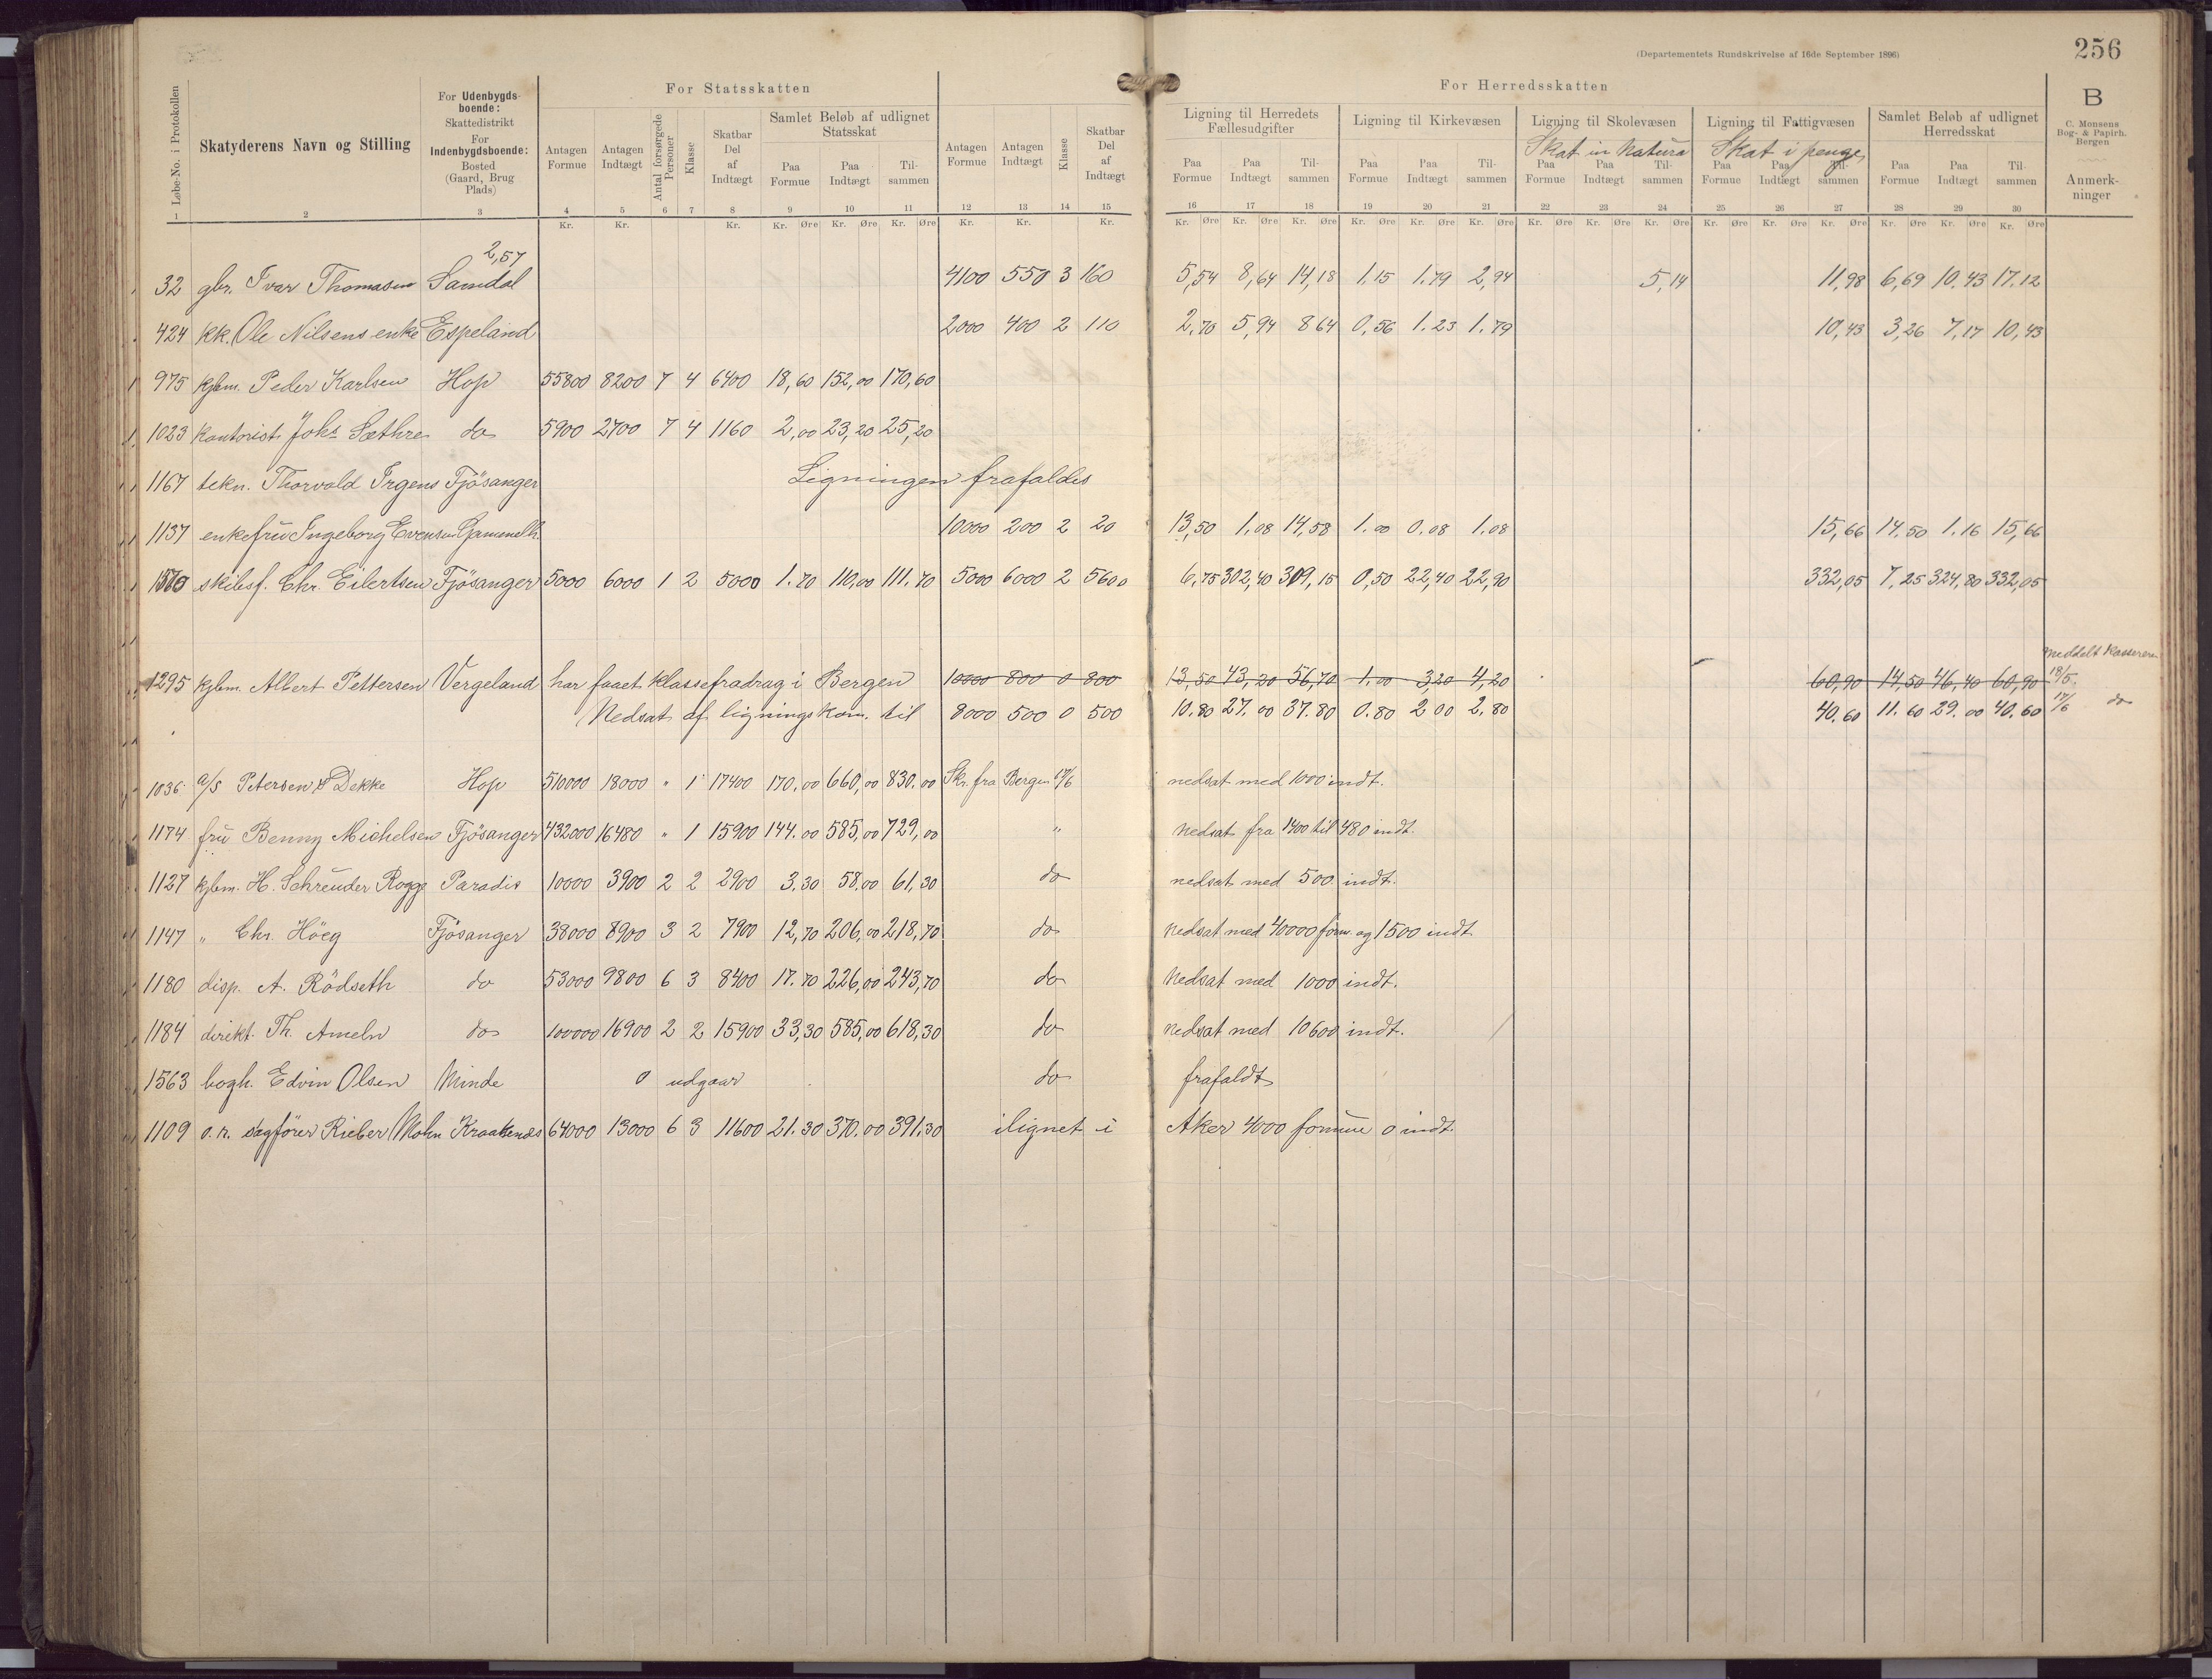 (Departementets Rundskrivelse af 16de September 1896)
256
Løbe-No. i Protokollen
Skatyderens Navn og Stilling
For Udenbygds-boende: Skattedistrikt For Indenbygdsboende: Bosted (Gaard, Brug Plads)
For Statsskatten
Antagen Formue
Antagen Indtægt
Antal forsørgede Personer
Klasse
Skatbar Del af Indtægt
Samlet Beløb af udlignet Statsskat
Paa Formue
Paa Indtægt
Tilsammen
Antagen Formue
Antagen Indtægt
Klasse
Skatbar Del af Indtægt
For Herredsskatten
Ligning til Herredets Fællesudgifter
Paa Formue
Paa Indtægt
Til-sammen
Ligning til Kirkevæsen
Paa Formue
Paa Indtægt
Til-sammen
Ligning til Skolevæsen
Skat in Natura
Paa Formue
Paa Indtægt
Til-sammen
Ligning til Fattigvæsen
Skat i penge
Paa Formue
Paa Indtægt
Til-sammen
Samlet Beløb af udlignet Herredsskat
Paa Formue
Paa Indtægt
Til-sammen
B
C. Monsens Bog- & Papirh. Bergen
Anmerk-ninger
1 2 3 4 5 6 7 8 9 10 11 12 13 14 15 16 17 18 19 20 21 22 23 24 25 26 27 28 29 30
Kr. Kr. Kr. Kr. Øre Kr. Øre Kr. Øre Kr. Kr. Kr. Kr. Øre Kr. Øre Kr. Øre Kr. Øre Kr. Øre Kr. Øre Kr. Øre Kr. Øre Kr. Øre Kr. Øre Kr. Øre Kr. Øre Kr. Øre Kr. Øre Kr. Øre
2,57
32 gbr. Ivar Thomasen Samdal 4100 550 3 160 5,54 8,64 14,18 1.15 1.79 2,94 5,14 11,98 6,69 10.43 17.12
424 kk. Ole Nilsens enke Espeland 2000 400 2 110 2,70 5,94 8 64 0,56 1.23 1.79 10,43 3,26 7,17 10,43
975 kjbm. Peder Karlsen Hop 55800 8200 7 4 6400 18,60 152,00 170,60
1023 kontorist Johs Sæthre do 5900 2700 7 4 1160 2,00 23,20 25,20
1167 tekn. Thorvald Irgens Fjösanger Ligningen frafaldes
1137 enkefru Ingeborg Evensen Gammelh. 10000 200 2 20 13,50 1.08 14,58 1.00 0.08 1.08 15,66 14.50 1.16 15,66
1570 skibsf. Chr. Eilertsen Fjösanger 5000 6000 1 2 5000 1.70 110,00 111.70 5000 6000 2 5600 6.75 302,40 309,15 0,50 22,40 22,90 332,05 7,25 324,80 332,05
Meddelt Kassereren
1295 kjbm. Albert Pettersen Vergeland har faaet klassefradrag i Bergen 10000 800 0 800 13,50 43,20 56,70 1.00 3,20 4,20 60,90 14,50 46,40 60,90 18/5.
Nedsat af ligningskom. til 8000 500 0 500 10.80 27.00 37.80 0.80 2 00 2,80 40.60 11.60 29.00 40.60 17/6 do
1036 a/s Petersen & Dekke Hop 510000 18000 " 1 17400 170.00 660,00 830.00 Skr. fra Bergen 17/6 nedsat med 1000 indt.
1174 fru Benny Michelsen Fjösanger 432000 16480 " 1 15900 144.00 585,00 729,00 " Nedsat fra 1400 til 480 indt.
1127 kjbm. H. Schreuder Rogge Paradis 10000 3900 2 2 2900 3.30 58.00 61,30 do nedsat med 500 indt.
1147 " Chr. Höeg Fjösanger 38000 8900 3 2 7900 12,70 206,00 218,70 do Nedsat med 40000 form. og 1500 indt.
1180 disp. A. Rödseth do 53000 9800 6 3 8400 17.70 226,00 243,70 do Nedsat med 1000 indt.
1184 direkt. Th. Ameln do 100000 16900 2 2 15900 33,30 585,00 618,30 do Nedsat med 10600 indt.
1563 bogh. Edvin Olsen Minde 0 udgaar do frafaldt
1109 o.r. sagförer Rieber Mohn Kraakenes 64000 13000 6 3 11600 21.30 370.00 391.30 ilignet i Aker 4000 formue 0 indt.